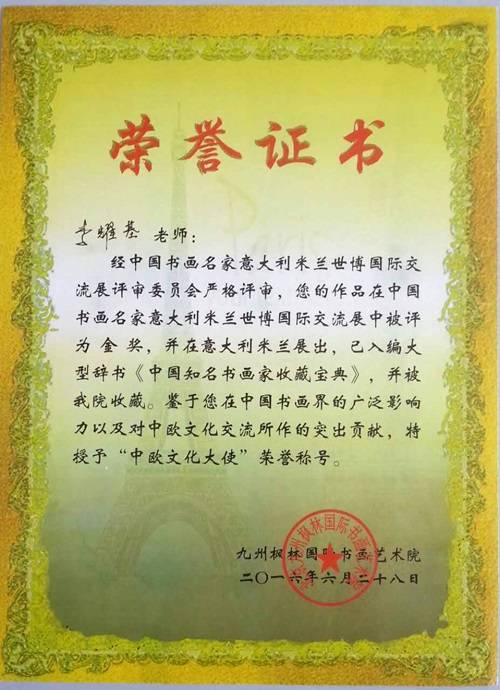 荣誉证书
Paris
李耀基 老师：
经中国书画名家意大利米兰世博国际交
流展评审委员会严格评审，您的作品在中国
书画名家意大利米兰世博国际交流展中被评
为金奖，并在意大利米兰展出，已入编大
型辞书《中国知名书画家收藏宝典》，并被
我院收藏。鉴于您在中国书画界的广泛影响
力以及对中欧文化交流所作的突出贡献，特
授予“中欧文化大使”荣誉称号。
九州枫林国际书画艺术院
二〇一六年六月二十八日
九州枫林国际书画艺术院